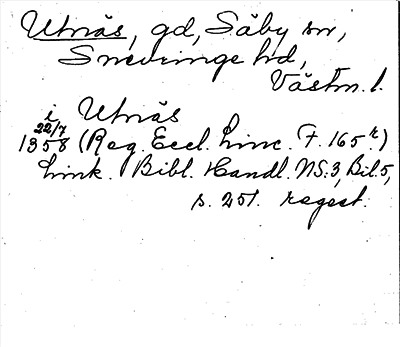 Utnäs, gd, Säby sn,
Snevringe hd,
Västm. l.
i Utnäs
22/7
1358 (Reg. Eccl. Linc. F. 165 r.)
Link. Bibl. Handl. NS:3, Bil. 5,
s. 251. regest.